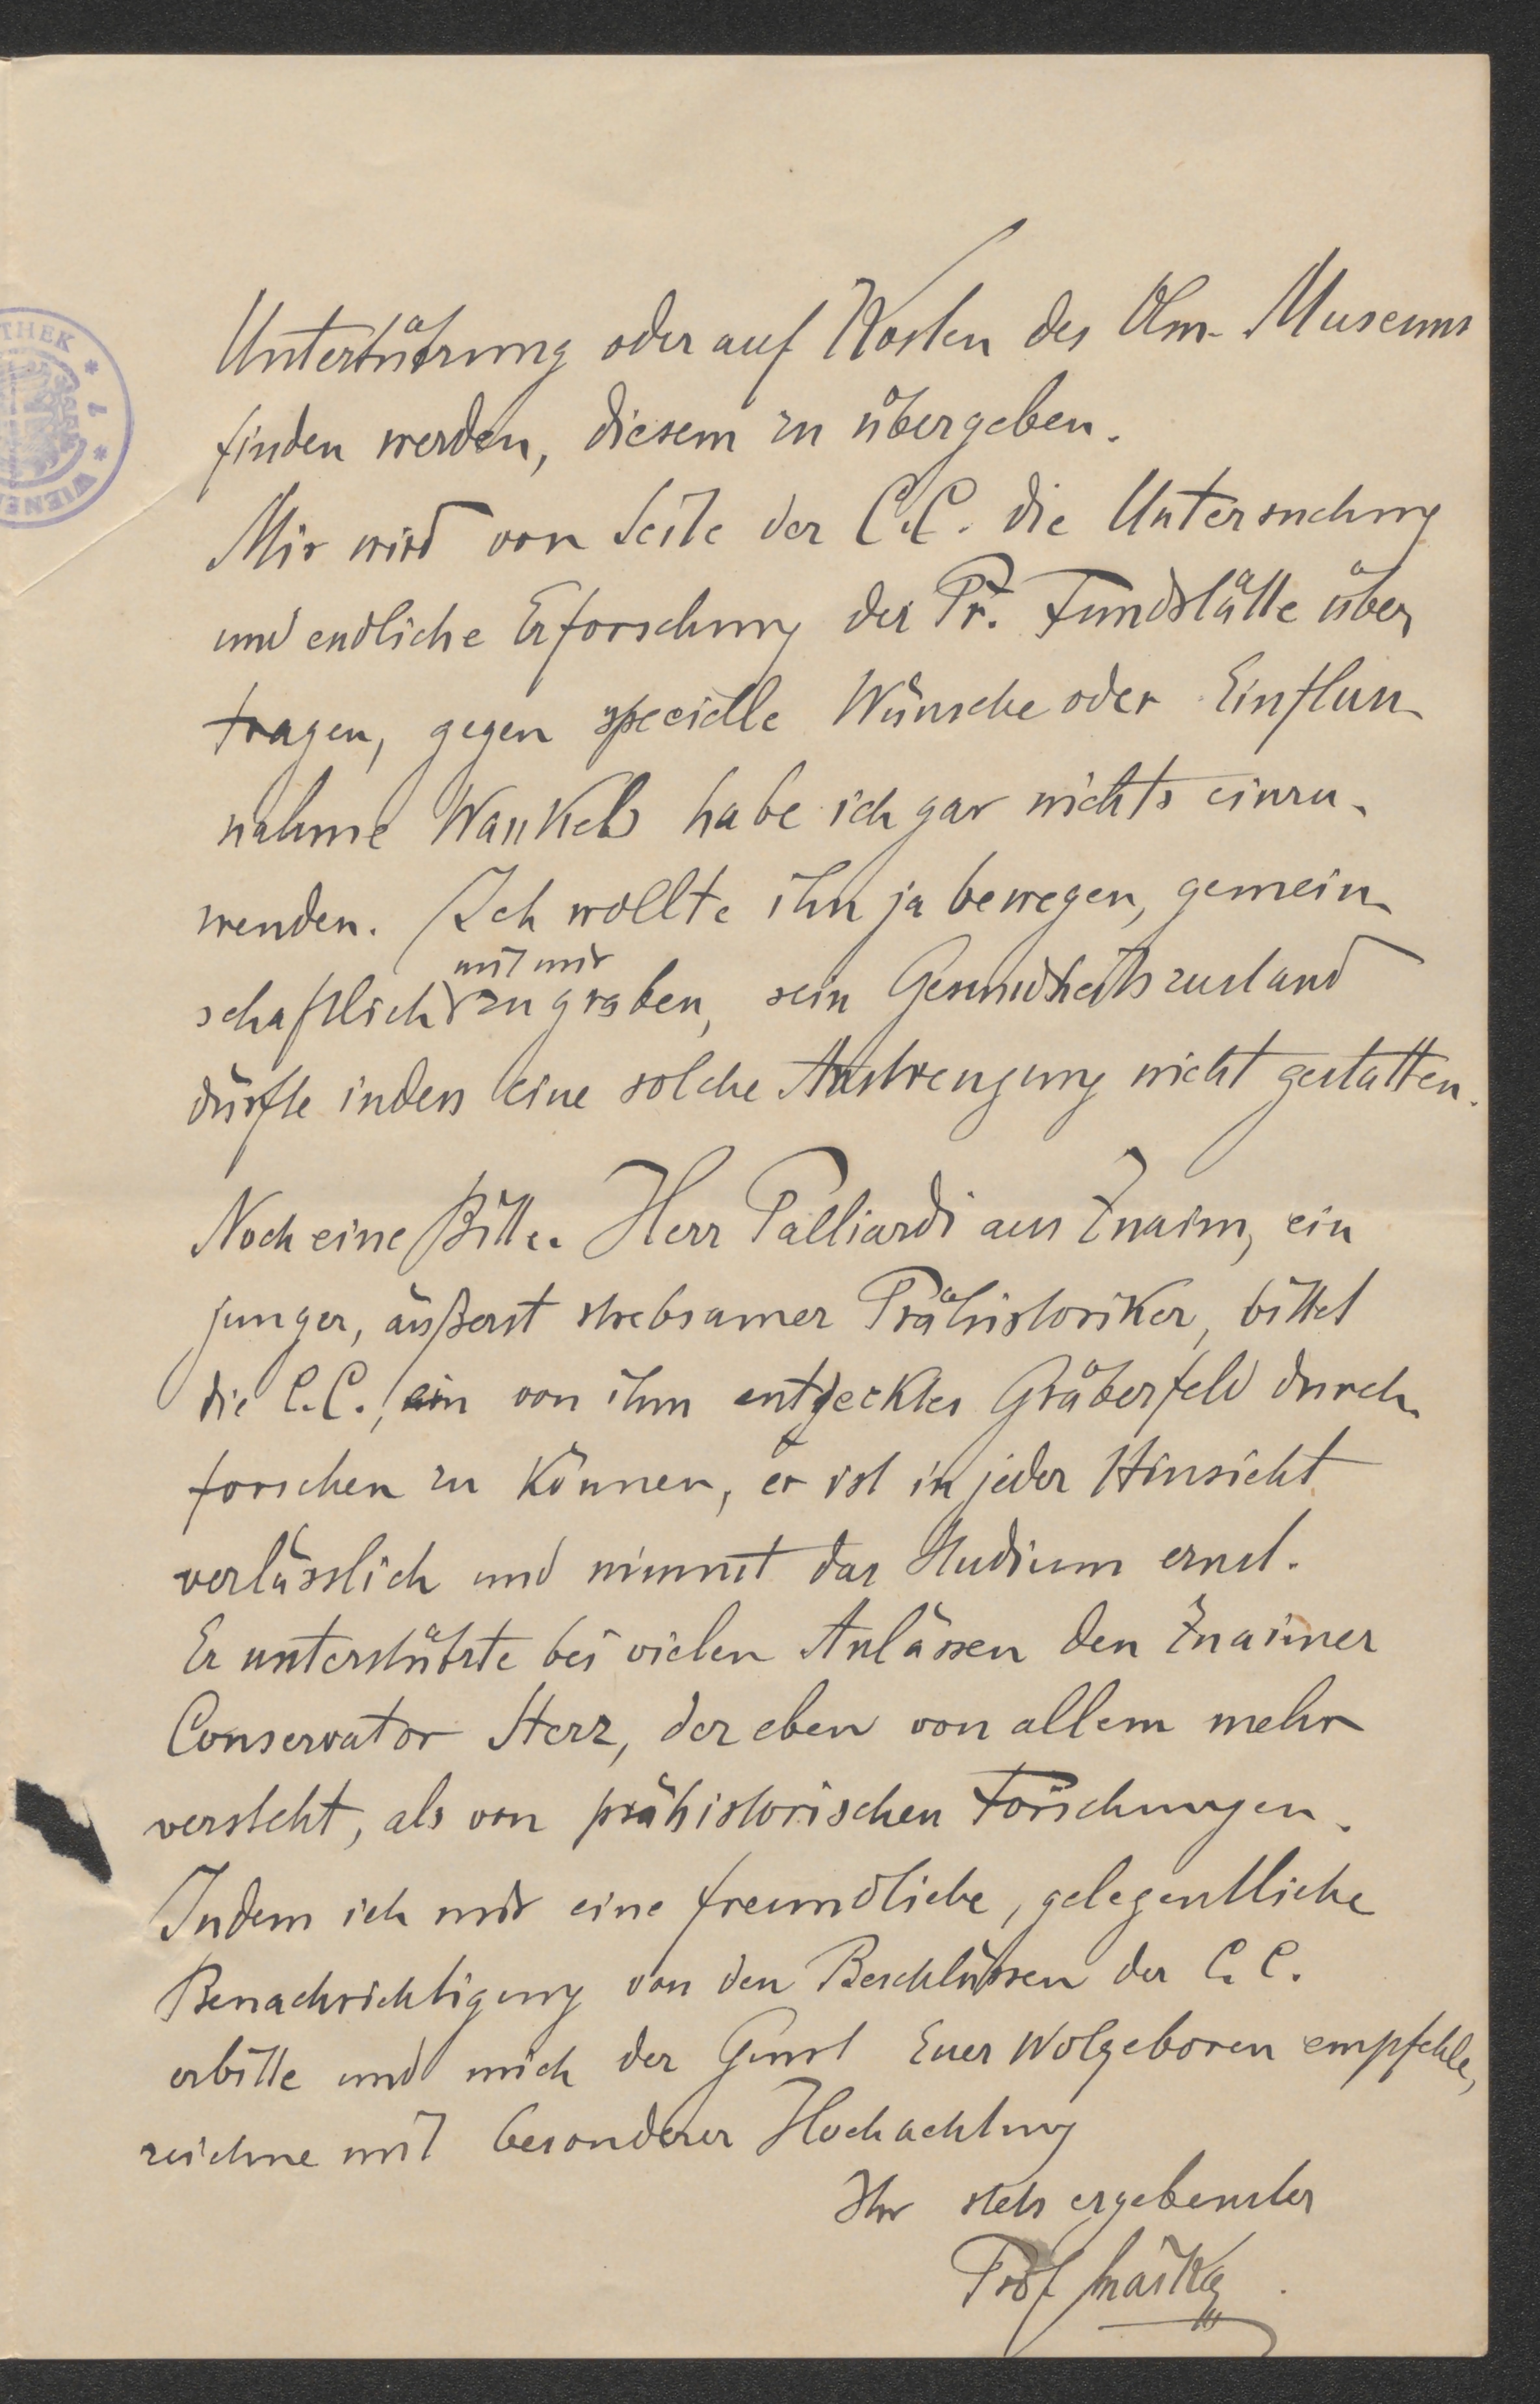 Unterstützung oder auf Kosten des Olm. Museums
finden werden, diesem zu übergeben.
Mir wird von Seite der C.C. die Untersuchung
und endliche Erforschung der Př. Fundstätte über
tragen, gegen specielle Wünsche oder Einfluss-
nahme Wankels habe ich gar nichts einzu-
wenden. Ich wollte ihn ja bewegen, gemein-
mit mir
schaftlich zu graben, sein Gesundheitszustand
dürfte indess eine solche Anstrengung nicht gestatten.
Noch eine Bitte. Herr Palliardi aus Znaim, ein
junger, äußerst strebsamer Prähistoriker, bittet
die C.C., ein von ihm entdecktes Gräberfeld durch-
forschen zu können, er ist in jeder Hinsicht
verlässlich und nimmt das Studium ernst.
Er unterstützte bei vielen Anlässen den Znaimer
Conservator Sterz, der eben von allem mehr
versteht, als von prähistorischen Forschungen.
Indem ich mir eine freundliche, gelegentliche
Benachrichtigung von den Beschlüssen der C.C.
erbitte und mich der Gunst Euer Wolgeboren empfehle,
zeichne mit besonderer Hochachtung
Ihr stets ergebenster
Prof Maška
THEK * 1 * WIENE